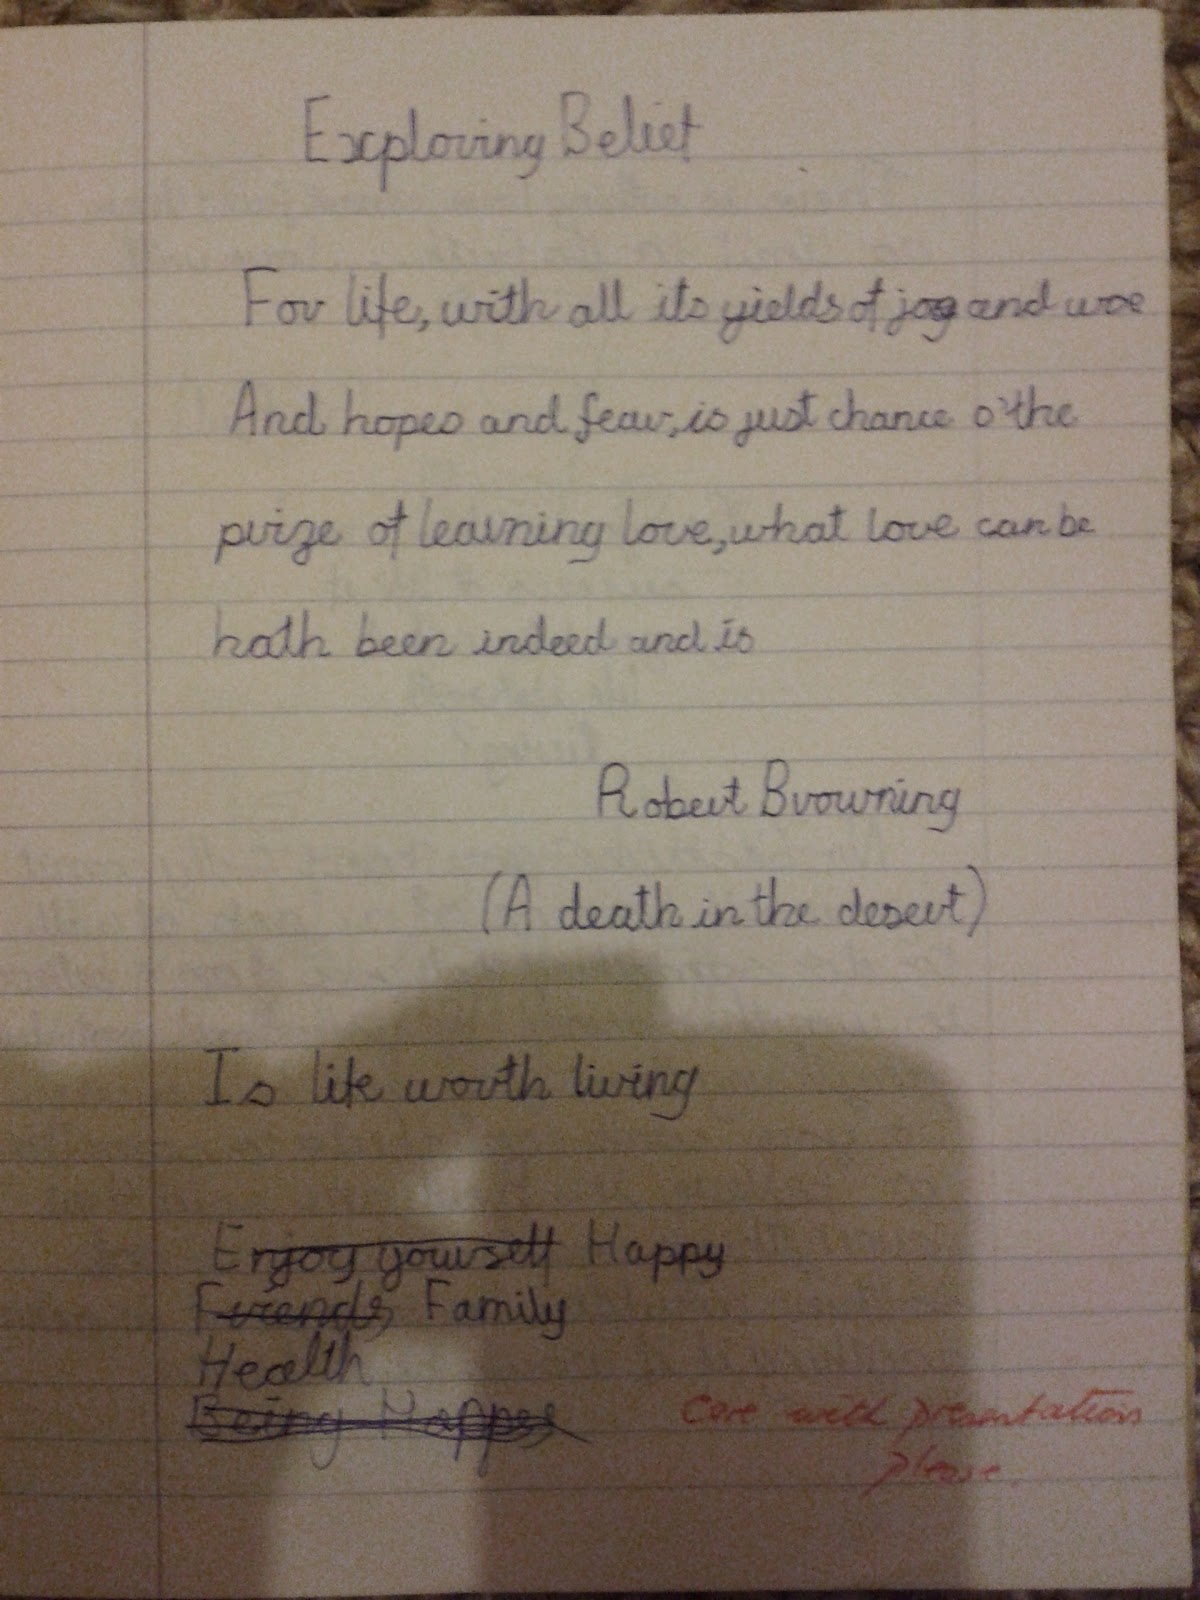 Exploring Belief
For life, with all its yields of joy and woe
And hopes and fear, is just chance o'the
prize of learning love, what love can be
hath been indeed and is
Robert Browning
(A death in the desert)
Is life worth living
Enjoy yourself Happy
Friends, Family
Health
Being Happy
care with presentation
please.